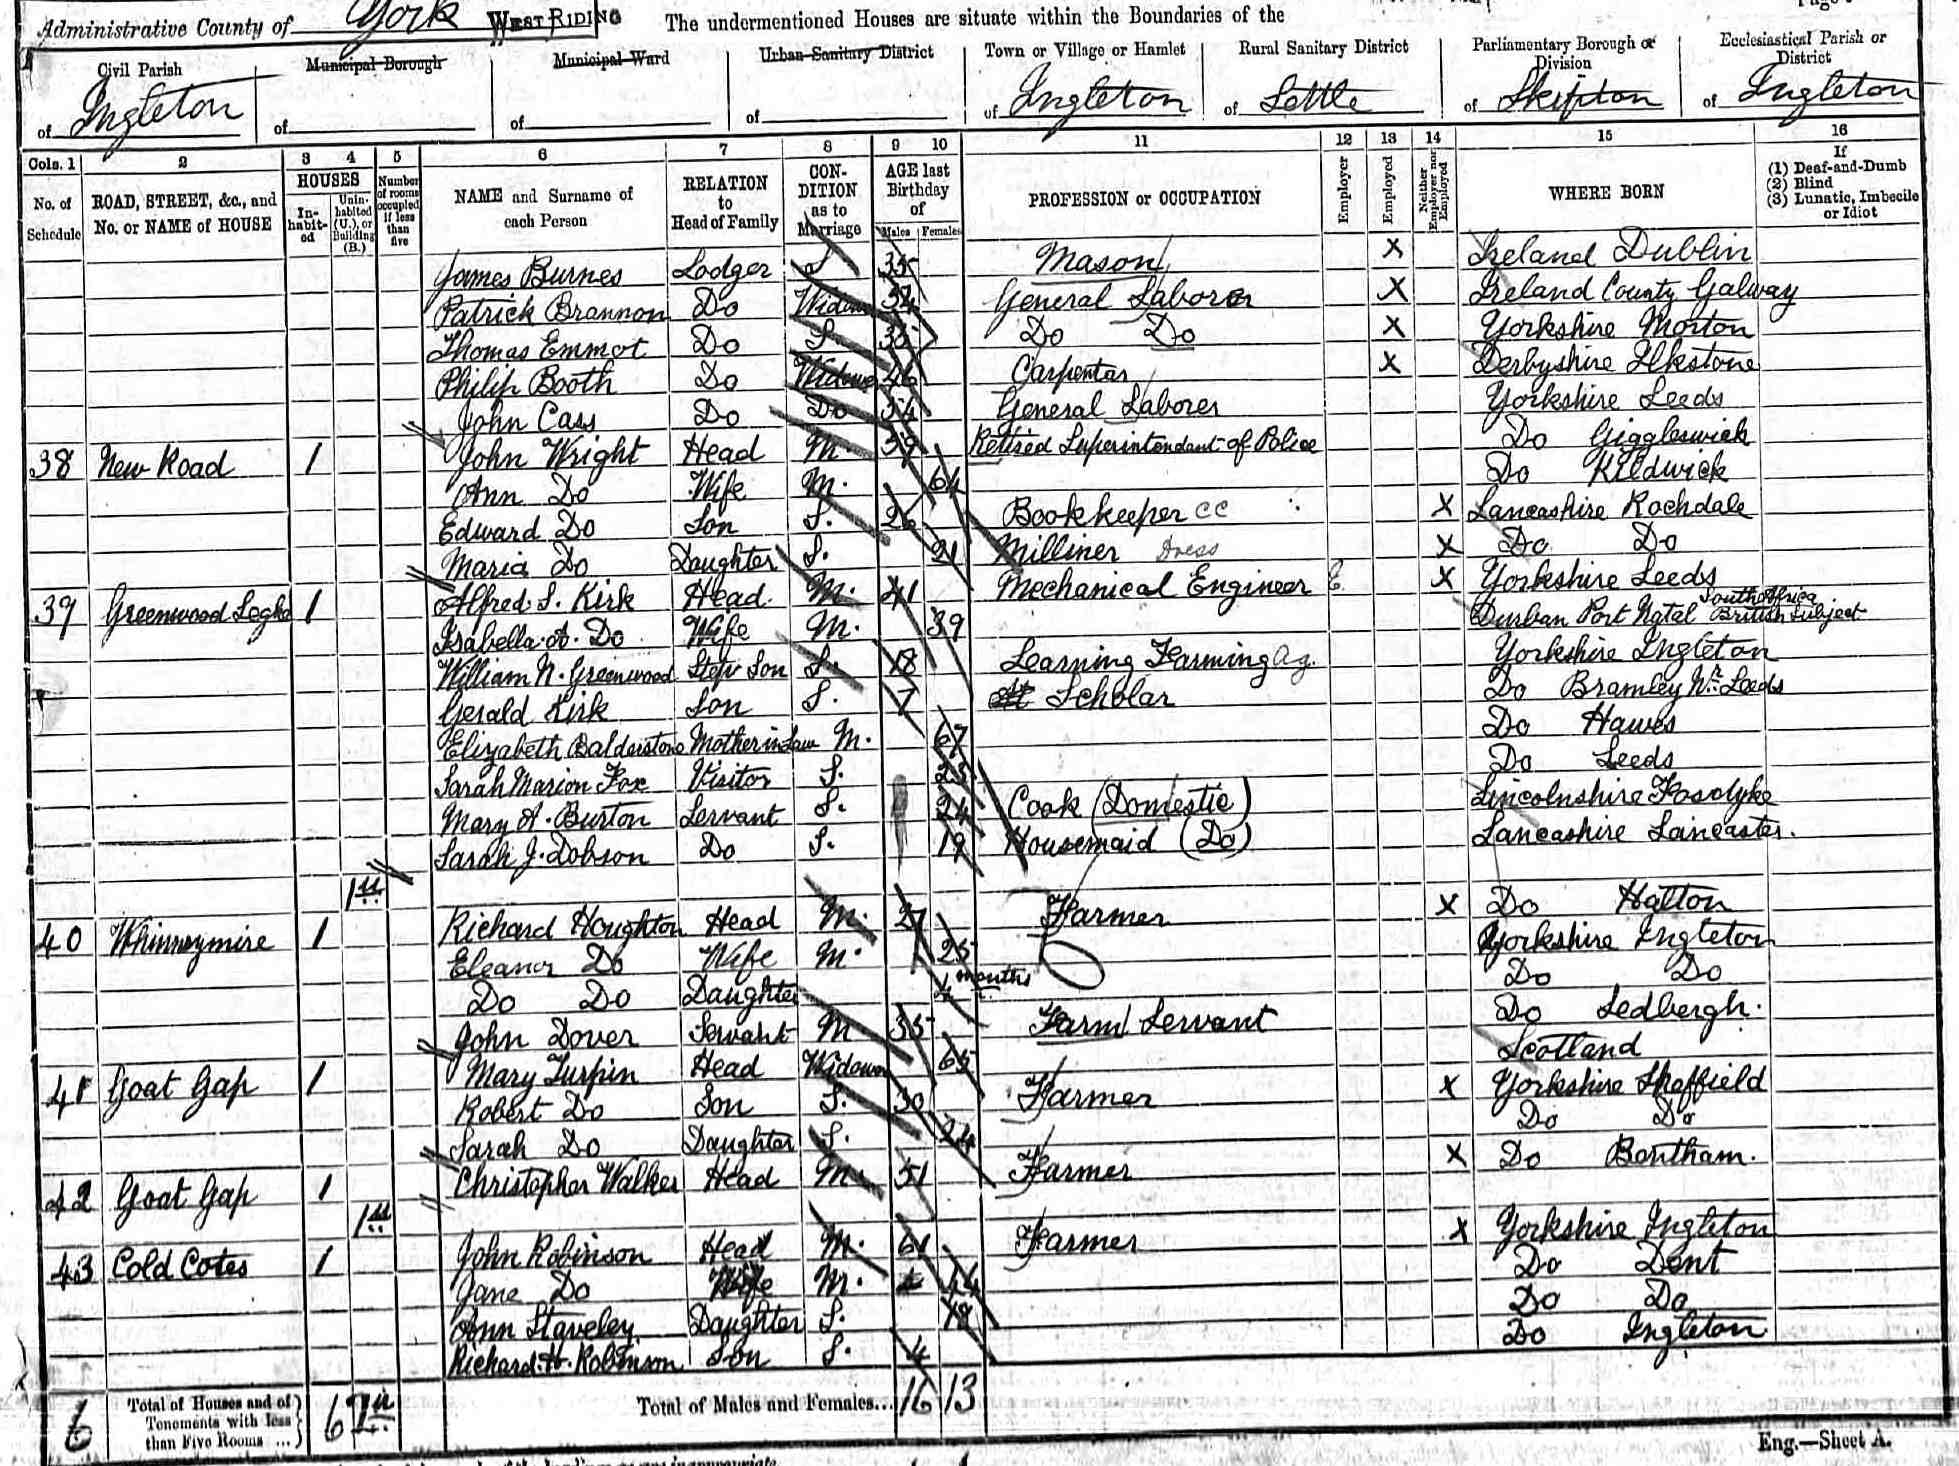 Administrative County of York WEST RIDING The undermentioned Houses are situate within the Boundaries of the
Civil Parish of Ingleton
Municipal Borough of
Municipal Ward of
Urban Sanitary District of
Town or Village or Hamlet of Ingleton
Rural Sanitary District of Settle
Parliamentary Borough or Division of Skipton
Ecclesiastical Parish or District of Ingleton
Cols. 1 2 3 4 5 6 7 8 9 10 11 12 13 14 15 16
No. of Schedule
ROAD, STREET, &c., and No. or NAME of HOUSE
HOUSES
In-habit-ed
Unin-habited (U.), or Building (B.)
Number of rooms occupied if less than five
NAME and Surname of each Person
RELATION to Head of Family
CON-DITION as to Marriage
AGE last Birthday of
Males Females
PROFESSION or OCCUPATION
Employer
Employed
Neither Employer nor Employed
WHERE BORN
If (1) Deaf-and-Dumb (2) Blind (3) Lunatic, Imbecile or Idiot
James Burnes Lodger S 35 Mason X Ireland Dublin
Patrick Brannon Do Widower 34 General Laborer X Ireland County Galway
Thomas Emmot Do S 38 Do Do X Yorkshire Morton
Philip Booth Do Widower 46 Carpenter X Derbyshire Ilkstone
John Cass Do Do 54 General Laborer Yorkshire Leeds
38 New Road 1 John Wright Head M. 59 Retised Superintendant of Police Do Giggleswick
Ann Do Wife M. 64 Do Kildwick
Edward Do Son S. 26 Bookkeeper CC X Lancashire Rochdale
Maria Do Daughter S. 21 Milliner Dress X Do Do
39 Greenwood Leghe 1 Alfred S. Kirk Head. M 41 Mechanical Engineer E X Yorkshire Leeds
Isabella A. Do Wife M. 39 Durban Port Natal South Africa British Subject
William N. Greenwood Step Son S. 18 Learning Farming Ag. Yorkshire Ingleton
Gerald Kirk Son S. 7 Scholar Do Bramley Nr. Leeds
Elizabeth Balderstone Mother in Law M. 67 Do Hawes
Sarah Marion Fox Visitor S. 23 Do Leeds
Mary A. Burton Servant S. 24 Cook (Domestic) Lincolnshire Fosdyke
Sarah J. Dobson Do S. 19 Housemaid (Do) Lancashire Lancaster.
1u
40 Whinneymire 1 Richard Houghton Head M. 27 Farmer X Do Halton
Eleanor Do Wife M. 25 Yorkshire Ingleton
Do Do Daughter 4 months Do Do
John Dover Servant M 35 Farm Servant Do Sedbergh.
41 Goat Gap 1 Mary Turpin Head Widower 65 Scotland
Robert Do Son S. 30 Farmer X Yorkshire Sheffield
Sarah Do Daughter S. 24 Do Do
42 Goat Gap 1 Christopher Walker Head M 51 Farmer X Do Bentham.
1u
43 Cold Cotes 1 John Robinson Head M. 61 Farmer X Yorkshire Ingleton
Jane Do Wife M. 44 Do Dent
Ann Staveley Daughter S. 18 Do Do
Richard H. Robinson Son S. 4 Do Ingleton
6 Total of Houses and of Tenements with less than Five Rooms ... 6 2u Total of Males and Females... 16 13
Eng.—Sheet A.